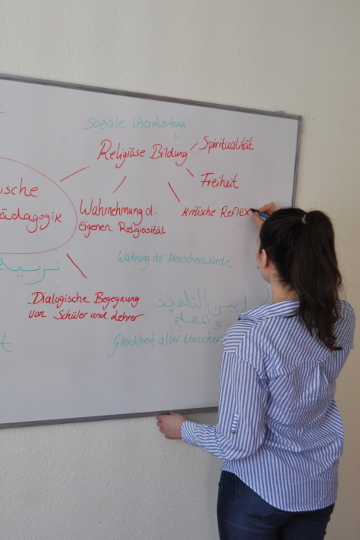 Soziale Verantwortung
Religiöse Bildung
Spiritualität
Freiheit
Kritische Reflex
ische
ädagogik
Wahrnehmung d.
eigenen Religiosität
Wahrung der Menschenwürde
Dialogische Begegnung
von Schüler und Lehrer
Gleichheit aller Menschen